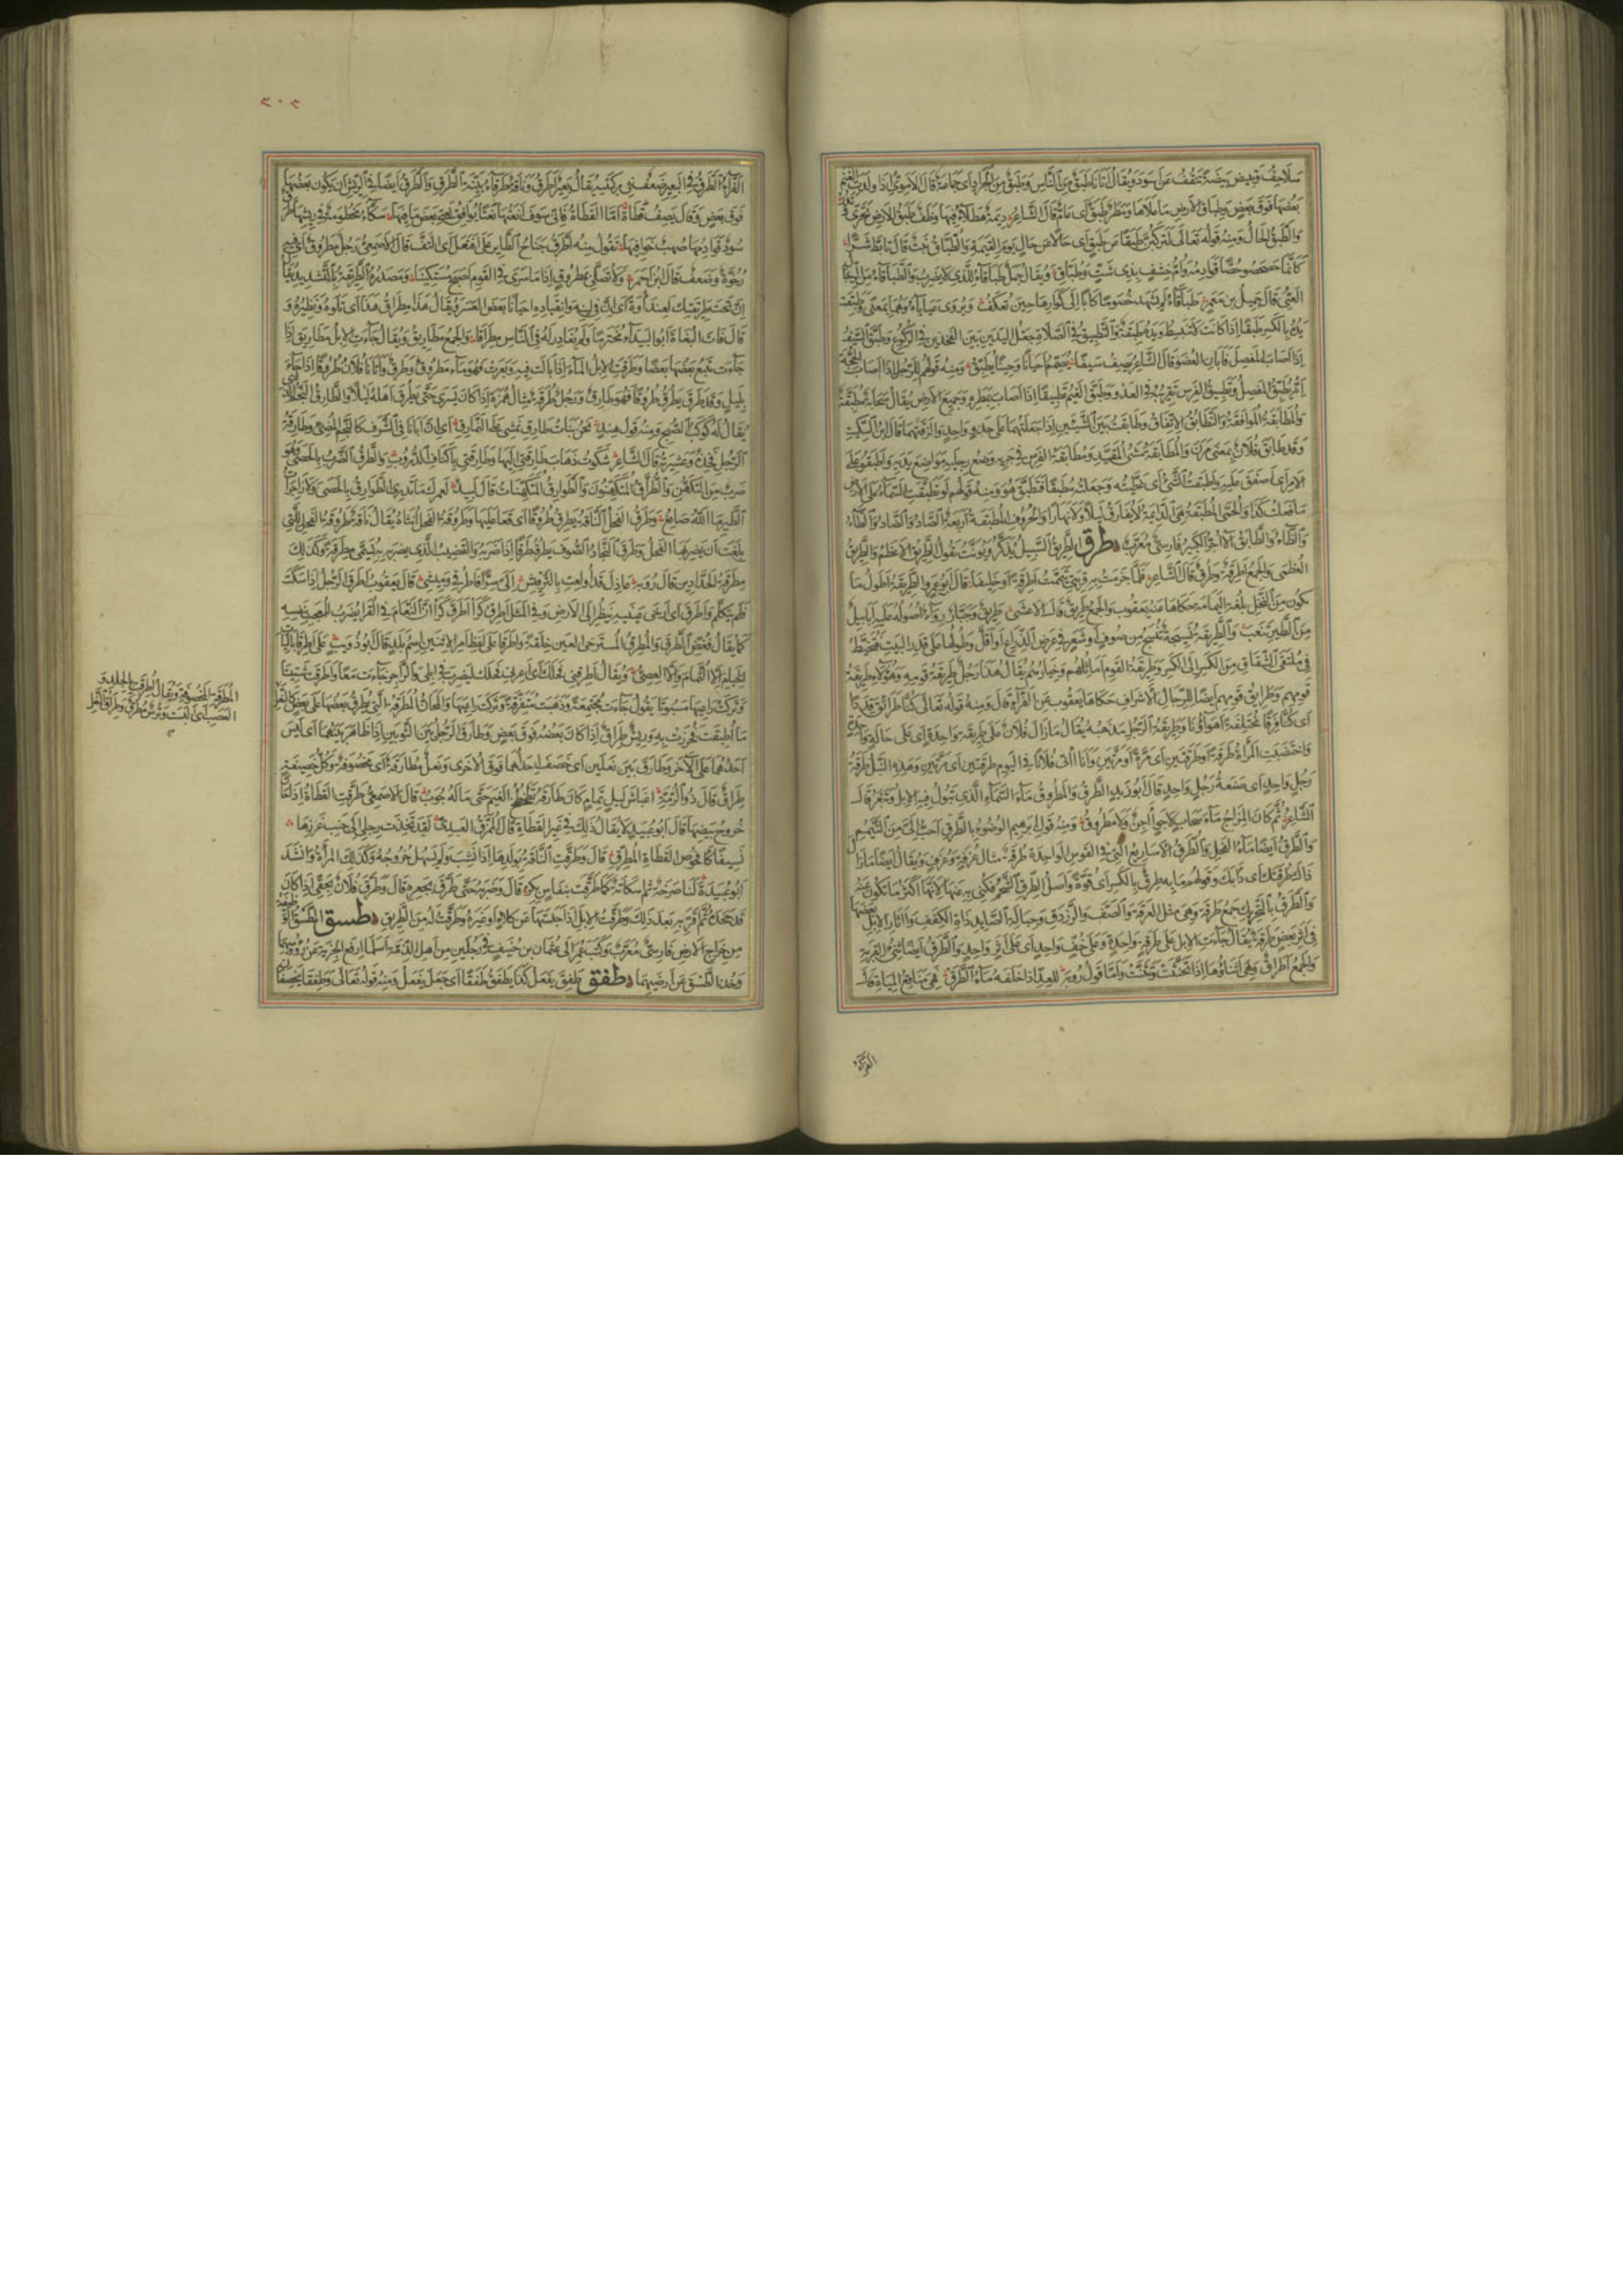 سَلَاحِفُ وَتَبِيضُ بَيْضَةً تَنْقُفُ عَنْ أَسْوَدَ وَيُقَالُ أَتَانَا طَبَقٌ مِنَ النَّاسِ وَطَبَقٌ مِنَ الْجَرَادِ أَيْ جَمَاعَةٌ قَالَ الْأُمَوِيُّ إِذَا وَلَدَتِ الْغَنَمُ
بَعْضُهَا فَوْقَ بَعْضٍ وَطِبَاقُ الْأَرْضِ مَا عَلَاهَا وَمَطَرٌ طَبَقٌ أَيْ عَامٌّ قَالَ الشَّاعِرُ دِيمَةٌ هَطْلَاءُ فِيهَا وَطَفٌ طَبَقُ الْأَرْضِ تَحَرَّى وَتَدُرُّ
وَالطَّبَقُ الْحَالُ وَمِنْهُ قَوْلُهُ تَعَالَى لَتَرْكَبُنَّ طَبَقًا عَنْ طَبَقٍ أَيْ حَالًا عَنْ حَالٍ يَوْمَ الْقِيَمَةِ وَالطُّبَّاقُ نَبْتٌ قَالَ تَأَبَّطَ شَرًّا
كَأَنَّمَا حَثْحَثُوا حُصًّا قَوَادِمُهُ أَوْ أُمَّ خِشْفٍ بِذِي شَثٍّ وَطُبَّاقِ وَيُقَالُ جَمَلٌ طَبَاقَاءُ لِلَّذِي لَا يَضْرِبُ وَالطَّبَاقَاءُ مِنَ الرِّجَالِ
الْعَيِيُّ قَالَ جَمِيلُ بْنُ مَعْمَرٍ طَبَاقَاءُ لَمْ يَشْهَدْ خُصُومًا رِكَابًا إِلَى أَكْوَارِهَا حِينَ تُعْكَفُ وَيُرْوَى عَيَايَاءُ وَهُمَا بِمَعْنًى وَطَبِقَتْ
يَدُهُ بِالْكَسْرِ طَبَقًا إِذَا كَانَتْ لَا تَنْبَسِطُ وَيَدُهُ طَبِقَةٌ وَالتَّطْبِيقُ فِي الصَّلَاةِ جَعْلُ الْيَدَيْنِ بَيْنَ الْفَخِذَيْنِ فِي الرُّكُوعِ وَطَبَّقَ السَّيْفُ
إِذَا أَصَابَ الْمَفْصِلَ فَأَبَانَ الْعُضْوَ قَالَ الشَّاعِرُ يَصِفُ سَيْفًا يُصَمِّمُ أَحْيَانًا وَحِينًا يُطَبِّقُ وَمِنْهُ قَوْلُهُمْ لِلرَّجُلِ إِذَا أَصَابَ الْحُجَّةَ
إِنَّهُ يُطَبِّقُ الْمَفْصِلَ وَتَطْبِيقُ الْفَرَسِ تَقْرِيبُهُ فِي الْعَدْوِ وَطَبَّقَ الْغَيْمُ تَطْبِيقًا إِذَا أَصَابَ بِمَطَرِهِ جَمِيعَ الْأَرْضِ يُقَالُ سَحَابَةٌ مُطَبِّقَةٌ
وَالْمُطَابَقَةُ الْمُوَافَقَةُ وَالتَّطَابُقُ الْاِتِّفَاقُ وَطَابَقْتُ بَيْنَ الشَّيْئَيْنِ إِذَا جَعَلْتَهُمَا عَلَى حَذْوٍ وَاحِدٍ وَأَلْزَقْتَهُمَا قَالَ ابْنُ السِّكِّيتِ
وَقَدْ طَابَقَ فُلَانٌ بِمَعْنَى مَرَنَ وَالْمُطَابَقَةُ مَشْيُ الْمُقَيَّدِ وَمُطَابَقَةُ الْفَرَسِ فِي جَرْيِهِ وَضْعُ رِجْلَيْهِ مَوَاضِعَ يَدَيْهِ وَأَطْبَقُوا عَلَى
الْأَمْرِ أَيْ أَصْفَقُوا عَلَيْهِ وَأَطْبَقْتُ الشَّيْءَ أَيْ غَطَّيْتُهُ وَجَعَلْتُهُ مُطْبَقًا فَتَطَبَّقَ هُوَ وَمِنْهُ قَوْلُهُمْ لَوْ تَطَبَّقَتِ السَّمَاءُ عَلَى الْأَرْضِ
مَا فَعَلْتُ كَذَا وَالْحُمَّى الْمُطْبِقَةُ هِيَ الدَّائِمَةُ لَا تُفَارِقُ لَيْلًا وَلَا نَهَارًا وَالْحُرُوفُ الْمُطْبَقَةُ أَرْبَعَةٌ الصَّادُ وَالضَّادُ وَالطَّاءُ
وَالظَّاءُ وَالطَّابَقُ الْآجُرُّ الْكَبِيرُ فَارِسِيٌّ مُعَرَّبٌ طرق الطَّرِيقُ السَّبِيلُ يُذَكَّرُ وَيُؤَنَّثُ تَقُولُ الطَّرِيقُ الْأَعْظَمُ وَالطَّرِيقُ
الْعُظْمَى وَالْجَمْعُ أَطْرِقَةٌ وَطُرُقٌ قَالَ الشَّاعِرُ فَلَمَّا جَزَمْتُ بِهِ قِرْبَتِي تَيَمَّمْتُ أَطْرِقَةً أَوْ خَلِيفَا قَالَ أَبُو عَمْرٍو الطَّرِيقَةُ أَطْوَلُ مَا
يَكُونُ مِنَ النَّخْلِ بِلُغَةِ الْيَمَامَةِ حَكَاهَا عَنْهُ يَعْقُوبُ وَالْجَمْعُ طَرِيقٌ قَالَ الْأَعْشَى طَرِيقٌ وَجَبَّارٌ رِوَاءٌ أُصُولُهُ عَلَيْهِ أَبَابِيلٌ
مِنَ الطَّيْرِ تَنْعَبُ وَالطَّرِيقَةُ نَسِيجَةٌ تُنْسَجُ مِنْ صُوفٍ أَوْ شَعَرٍ فِي عَرْضِ الذِّرَاعِ أَوْ أَقَلَّ وَطُولُهَا عَلَى قَدْرِ الْبَيْتِ فَتُخَيَّطُ
فِي مُلْتَقَى الشِّقَاقِ مِنَ الْكِسْرِ إِلَى الْكِسْرِ وَطَرِيقَةُ الْقَوْمِ أَمَاثِلُهُمْ وَخِيَارُهُمْ يُقَالُ هَذَا رَجُلٌ طَرِيقَةُ قَوْمِهِ وَهَؤُلَاءِ طَرِيقَةُ
قَوْمِهِمْ وَطَرَايِقُ قَوْمِهِمْ أَيْضًا لِلرِّجَالِ الْأَشْرَافِ حَكَاهَا يَعْقُوبُ عَنِ الْفَرَّاءِ قَالَ وَمِنْهُ قَوْلُهُ تَعَالَى كُنَّا طَرَائِقَ قِدَدًا
أَيْ كُنَّا فِرَقًا مُخْتَلِفَةً أَهْوَاؤُنَا وَطَرِيقَةُ الرَّجُلِ مَذْهَبُهُ يُقَالُ مَا زَالَ فُلَانٌ عَلَى طَرِيقَةٍ وَاحِدَةٍ أَيْ عَلَى حَالَةٍ وَاحِدَةٍ
وَاخْتَضَبَتِ الْمَرْأَةُ طَرْقَةً أَوْ طَرْقَتَيْنِ أَيْ مَرَّةً أَوْ مَرَّتَيْنِ وَأَنَا آتِي فُلَانًا فِي الْيَوْمِ طَرْقَتَيْنِ أَيْ مَرَّتَيْنِ وَهَذِهِ النَّبْلُ طَرْقَةُ
رَجُلٍ وَاحِدٍ أَيْ صَنْعَةُ رَجُلٍ وَاحِدٍ قَالَ أَبُو زَيْدٍ الطَّرْقُ وَالْمَطْرُوقُ مَاءُ السَّمَاءِ الَّذِي تَبُولُ فِيهِ الْإِبِلُ وَتَبْعَرُ قَالَ
الشَّاعِرُ ثُمَّ كَانَ الْمِزَاجُ مَاءَ سَحَابٍ لَا جَوٍ آجِنٌ وَلَا مَطْرُوقُ وَمِنْهُ قَوْلُ إِبْرَهِيمَ الْوُضُوءُ بِالطَّرْقِ أَحَبُّ إِلَيَّ مِنَ التَّيَمُّمِ
وَالطَّرْقُ أَيْضًا مَاءُ الْفَحْلِ وَالطُّرَقُ الْأَسَارِيعُ الَّتِي فِي الْقَوْسِ الْوَاحِدَةُ طُرْقَةٌ مِثَالُ غُرْفَةٍ وَغُرَفٍ وَيُقَالُ أَيْضًا مَا زَالَ
ذَاكَ طُرْقَتَكَ أَيْ دَأْبَكَ وَقَوْلُهُمْ مَا بِهِ طِرْقٌ بِالْكَسْرِ أَيْ قُوَّةٌ وَأَصْلُ الطِّرْقِ الشَّحْمُ فَكُنِيَ بِهِ عَنْهَا لِأَنَّهَا أَكْثَرُ مَا تَكُونُ عَنْهُ
وَالطَّرَقُ بِالتَّحْرِيكِ جَمْعُ طَرَقَةٍ وَهِيَ مِثْلُ الْعَرَقَةِ وَالصَّفِّ وَالرَّزْدَقِ وَحِبَالَةِ الصَّائِدِ ذَاتِ الْكِفَفِ وَآثَارُ الْإِبِلِ بَعْضُهَا
فِي أَثَرِ بَعْضٍ طَرَقَةٌ يُقَالُ جَاءَتِ الْإِبِلُ عَلَى طَرَقَةٍ وَاحِدَةٍ وَعَلَى خُفٍّ وَاحِدٍ أَيْ عَلَى أَثَرٍ وَاحِدٍ وَالطَّرَقُ أَيْضًا ثِنْيُ الْقِرْبَةِ
وَالْجَمْعُ أَطْرَاقٌ وَهِيَ أَثْنَاؤُهَا إِذَا تَخَنَّثَتْ وَتَثَنَّتْ وَأَمَّا قَوْلُ رُؤْبَةَ لِلْعِدِّ إِذْ أَخْلَفَهُ مَاءُ الطَّرَقْ فَهِيَ مَنَاقِعُ الْمِيَاهِ قَالَ
الْفَرَّاءُ
٢٠٢
الْفَرَّاءُ الطَّرَقُ فِي الْبَعِيرِ ضَعْفٌ فِي رُكْبَتَيْهِ يُقَالُ بَعِيرٌ أَطْرَقُ وَنَاقَةٌ طَرْقَاءُ بَيِّنَةُ الطَّرَقِ وَالطَّرَقُ أَيْضًا فِي الرِّيشِ أَنْ يَكُونَ بَعْضُهَا
فَوْقَ بَعْضٍ وَقَالَ يَصِفُ قَطَاةً أَمَّا الْقَطَاةُ فَإِنِّي سَوْفَ أَنْعَتُهَا نَعْتًا يُوَافِقُ نَعْتِي بَعْضَ مَا فِيهَا سَكَّاءُ مَخْطُومَةٌ فِي رِيشِهَا طَرَقٌ
سُودٌ قَوَادِمُهَا صُهْبٌ خَوَافِيهَا تَقُولُ مِنْهُ اطَّرَقَ جَنَاحُ الطَّائِرِ عَلَى افْتَعَلَ أَيِ الْتَفَّ قَالَ الْأَصْمَعِيُّ رَجُلٌ مَطْرُوقٌ أَيْ فِيهِ
رُخْوَةٌ وَضَعْفٌ قَالَ ابْنُ أَحْمَرَ وَلَا تَصِلِي بِمَطْرُوقٍ إِذَا مَا سَرَى فِي الْقَوْمِ أَصْبَحَ مُسْتَكِينَا وَمَصْدَرُهُ الطِّرِّيقَةُ بِالتَّشْدِيدِ يُقَالُ
إِنَّ تَحْتَ طِرِّيقَتِكَ لَعِنْدَأْوَةً أَيْ إِنَّ فِي لِينِهِ وَانْقِيَادِهِ أَحْيَانًا بَعْضَ الْعُسْرِ وَيُقَالُ هَذَا مِطْرَاقُ هَذَا أَيْ تِلْوُهُ وَنَظِيرُهُ وَ
قَالَ فَاتَ الْبُغَاةَ أَبُو الْبَيْدَاءِ مُخْتَرِمًا وَلَمْ يُغَادِرْ لَهُ فِي النَّاسِ مِطْرَاقَا وَالْجَمْعُ مَطَارِيقُ وَيُقَالُ جَاءَتِ الْإِبِلُ مَطَارِيقَ إِذَا
جَاءَتْ تَتْبَعُ بَعْضُهَا بَعْضًا وَطَرَقَتِ الْإِبِلُ الْمَاءَ إِذَا بَالَتْ فِيهِ وَبَعَرَتْ فَهُوَ مَاءٌ مَطْرُوقٌ وَطَرْقٌ وَأَتَانَا فُلَانٌ طُرُوقًا إِذَا جَاءَ
بِلَيْلٍ وَقَدْ طَرَقَ يَطْرُقُ طُرُوقًا فَهُوَ طَارِقٌ وَرَجُلٌ طُرَقَةٌ مِثَالُ هُمَزَةٍ إِذَا كَانَ يَسْرِي حَتَّى يَطْرُقَ أَهْلَهُ لَيْلًا وَالطَّارِقُ النَّجْمُ الَّذِي
يُقَالُ لَهُ كَوْكَبُ الصُّبْحِ وَمِنْهُ قَوْلُ هِنْدٍ نَحْنُ بَنَاتُ طَارِقِ نَمْشِي عَلَى النَّمَارِقِ أَيْ إِنَّ أَبَانَا فِي الشَّرَفِ كَالنَّجْمِ الْمُضِيءِ وَطَارِقَةُ
الرَّجُلِ فَخِذُهُ وَعَشِيرَتُهُ قَالَ الشَّاعِرُ شَكَوْتُ ذَهَابَ طَارِقَتِي إِلَيْهَا وَطَارِقَتِي بِأَكْنَافِ الدُّرُوبِ وَالطَّرْقُ الضَّرْبُ بِالْحَصَى وَهُوَ
ضَرْبٌ مِنَ التَّكَهُّنِ وَالطُّرَّاقُ الْمُتَكَهِّنُونَ وَالطَّوَارِقُ الْمُتَكَهِّنَاتُ قَالَ لَبِيدٌ لَعَمْرُكَ مَا تَدْرِي الطَّوَارِقُ بِالْحَصَى وَلَا زَاجِرَاتُ
الطَّيْرِ مَا اللَّهُ صَانِعُ وَطَرَقَ الْفَحْلُ النَّاقَةَ يَطْرُقُ طُرُوقًا أَيْ قَعَا عَلَيْهَا وَطَرُوقَةُ الْفَحْلِ أُنْثَاهُ يُقَالُ نَاقَةٌ طَرُوقَةُ الْفَحْلِ لِلَّتِي
بَلَغَتْ أَنْ يَضْرِبَهَا الْفَحْلُ وَطَرَقَ النَّجَّادُ الصُّوفَ يَطْرُقُهُ طَرْقًا إِذَا ضَرَبَهُ وَالْقَضِيبُ الَّذِي يَضْرِبُ بِهِ يُسَمَّى مِطْرَقَةً وَكَذَلِكَ
مِطْرَقَةُ الْحَدَّادِينَ قَالَ رُؤْبَةُ عَاذِلَ قَدْ أُولِعْتِ بِالتَّرْقِيشِ إِلَيَّ سِرًّا فَاطْرُقِي وَمِيشِي قَالَ يَعْقُوبُ أَطْرَقَ الرَّجُلُ إِذَا سَكَتَ
فَلَمْ يَتَكَلَّمْ وَأَطْرَقَ أَيْ أَرْخَى عَيْنَيْهِ يَنْظُرُ إِلَى الْأَرْضِ وَفِي الْمَثَلِ أَطْرِقْ كَرَا أَطْرِقْ كَرَا إِنَّ النَّعَامَ فِي الْقُرَى يُضْرَبُ لِلْمُعْجَبِ بِنَفْسِهِ
كَمَا يُقَالُ فَغُضَّ الطَّرْفَ وَالْمُطْرِقُ الْمُسْتَرْخِي الْعَيْنِ خِلْقَةً وَأَطْرِقَا عَلَى لَفْظِ أَمْرِ الْاِثْنَيْنِ اسْمُ بَلَدٍ قَالَ أَبُو ذُؤَيْبٍ عَلَى أَطْرِقَا بَالِيَاتُ
الْخِيَامِ إِلَّا الثُّمَامُ وَإِلَّا الْعِصِيُّ وَيُقَالُ أَطْرِقْنِي فَحْلَكَ أَيْ أَعِرْنِي فَحْلَكَ لِيَضْرِبَ فِي إِبِلِي وَالرَّاجِزُ جَاءَتْ مَعًا وَأَطْرَقَتْ شَتِيتَا
وَتَرَكَتْ رَاعِيَهَا مَسْبُوتَا يَقُولُ جَاءَتْ مُجْتَمِعَةً وَذَهَبَتْ مُتَفَرِّقَةً وَتَرَكَتْ رَاعِيَهَا وَالْمَجَانُّ الْمُطْرَقَةُ الَّتِي يُطْرَقُ بَعْضُهَا عَلَى بَعْضٍ كَالنَّعْلِ
الْمُطْرَقَةِ الْمَخْصُوفَةِ وَيُقَالُ أُطْرِقَتْ بِالْجِلْدِ وَ
الْعَصَبِ أَيْ أُلْبِسَتْ وَتُرْسٌ مُطْرَقٌ وَطِرَاقُ النَّعْلِ
مَا أُطْبِقَتْ فَخُرِزَتْ بِهِ وَرِيشٌ طِرَاقٌ إِذَا كَانَ بَعْضُهُ فَوْقَ بَعْضٍ وَطَارَقَ الرَّجُلُ بَيْنَ الثَّوْبَيْنِ إِذَا ظَاهَرَ بَيْنَهُمَا أَيْ لَبِسَ
أَحَدَهُمَا عَلَى الْآخَرِ وَطَارَقَ بَيْنَ نَعْلَيْنِ أَيْ خَصَفَ إِحْدَاهُمَا فَوْقَ الْأُخْرَى وَنَعْلٌ مُطَارَقَةٌ أَيْ مَخْصُوفَةٌ وَكُلُّ خَصِيفَةٍ
طِرَاقٌ قَالَ ذُو الرُّمَّةِ أَغْبَاشَ لَيْلٍ تِمَامٍ كَانَ طَارَقَهُ تَطَخْطُخُ الْغَيْمِ حَتَّى مَا لَهُ جُوَبُ قَالَ الْأَصْمَعِيُّ طَرَّقَتِ الْقَطَاةُ إِذَا حَانَ
خُرُوجُ بَيْضِهَا قَالَ أَبُو عُبَيْدٍ لَا يُقَالُ ذَلِكَ فِي غَيْرِ الْقَطَاةِ قَالَ الْمُمَزَّقُ الْعَبْدِيُّ لَقَدْ تَخِذَتْ رِجْلِي إِلَى جَنْبِ غَرْزِهَا
نَسِيفًا كَأُفْحُوصِ الْقَطَاةِ الْمُطَرِّقِ قَالَ وَطَرَّقَتِ النَّاقَةُ بِوَلَدِهَا إِذَا نَشِبَ وَلَمْ يَسْهُلْ خُرُوجُهُ وَكَذَلِكَ الْمَرْأَةُ وَأَنْشَدَ
أَبُو عُبَيْدَةَ لَنَا صَرْخَةٌ ثُمَّ إِسْكَاتَةٌ كَمَا طَرَّقَتْ بِنِفَاسٍ بِكْرُ قَالَ وَضَرَبَهُ حَتَّى طَرَّقَ بِجَعْرِهِ قَالَ وَطَرَّقَ فُلَانٌ بِحَقِّي إِذَا كَانَ
قَدْ جَحَدَهُ ثُمَّ أَقَرَّ بِهِ بَعْدَ ذَلِكَ وَطَرَّقْتُ الْإِبِلَ إِذَا حَبَسْتَهَا عَنْ كَلَإٍ أَوْ غَيْرِهِ وَطَرَّقْتُ لَهُ مِنَ الطَّرِيقِ طسق الطَّسْقُ الْوَظِيفَةُ
مِنْ خَرَاجِ الْأَرْضِ فَارِسِيٌّ مُعَرَّبٌ وَكَتَبَ عُمَرُ إِلَى عُثْمَانَ بْنِ حُنَيْفٍ فِي رَجُلَيْنِ مِنْ أَهْلِ الذِّمَّةِ أَسْلَمَا ارْفَعِ الْجِزْيَةَ عَنْ رُؤُوسِهِمَا
وَخُذِ الطَّسْقَ عَنْ أَرْضَيْهِمَا طفق طَفِقَ يَفْعَلُ كَذَا يَطْفَقُ طَفَقًا أَيْ جَعَلَ يَفْعَلُ وَمِنْهُ قَوْلُهُ تَعَالَى وَطَفِقَا يَخْصِفَانِ